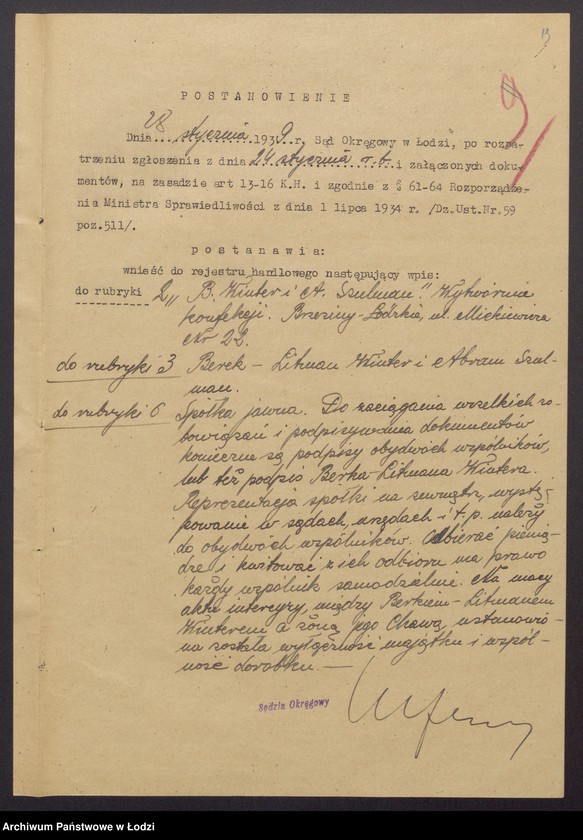 13
POSTANOWIENIE
28
Dnia...stycznia...1939.r. Sąd Okręgowy w Łodzi, po rozpa-
trzeniu zgłoszenia z dnia 24 stycznia r.b. i załączonych doku-
mentów, na zasadzie art 13-16 K.H. i zgodnie z § 61-64 Rozporządze-
nia Ministra Sprawiedliwości z dnia 1 lipca 1934 r. /Dz.Ust.Nr.59
poz.511/.
postanawia:
wnieść do rejestru handlowego następujący wpis:
do rubryki 2 „B. Winter i A. Szulman". Wytwórnia
konfekcji. Brzeziny-Łódzkie, ul. Mickiewicza
Nr 22.
do rubryki 3 Berek-Litman Winter i Abram Szul-
man.
do rubryki 6 Spółka jawna. Do zaciągania wszelkich zo-
bowiązań i podpisywania dokumentów
konieczne są podpisy obydwóch wspólników,
lub też podpis Berka-Litmana Wintera.
Reprezentacja spółki na zewnątrz, wystę-
powanie w sądach, urzędach i t.p. należy
do obydwóch wspólników. Odbierać pienią-
dze i kwitować z ich odbioru ma prawo
każdy wspólnik samodzielnie. Na mocy
aktu intercyzy, między Berkiem-Litmanem
Winterem a żoną jego Chawą, ustanowio-
na została wyłączność majątku i wspól-
ność dorobku.—
Sędzia Okręgowy
Archiwum Państwowe w Łodzi